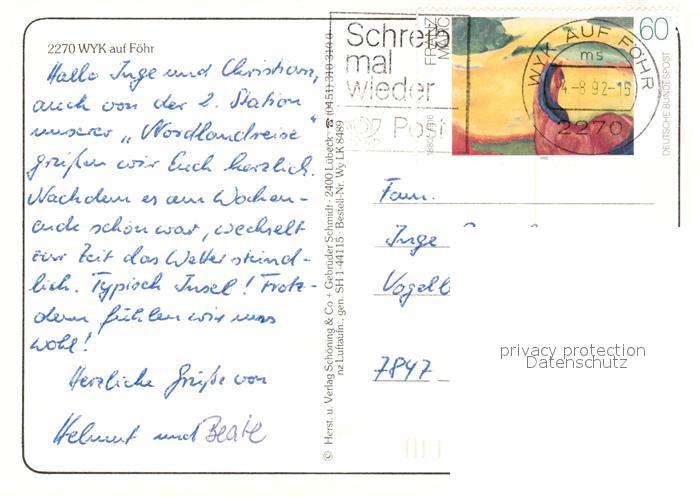 2270 WYK auf Föhr
Hallo Inge und Christian,
auch von der 2. Station
unserer „Nordlandreise"
grüßen wir Euch herzlich.
Nachdem es am Wochen-
ende schön war, wechselt
zur Zeit das Wetter stünd-
lich. Typisch Insel! Trotz-
dem fühlen wir uns
wohl!
Herzliche Grüße von
Helmut und Beate
© Herst. u. Verlag Schöning & Co + Gebrüder Schmidt · 2400 Lübeck ☎ (04 51) 310 310 0
nz Luftaufn., gen. SH 1-44115 · Bestell-Nr. Wy LK 8489
Schreib
mal
wieder
Post
FRANZ
MARC
1880 1916
60
DEUTSCHE BUNDESPOST
WYK AUF FÖHR
ms
-8.92-16
2270
Fam.
Inge
Vogelb
7847
privacy protection
Datenschutz